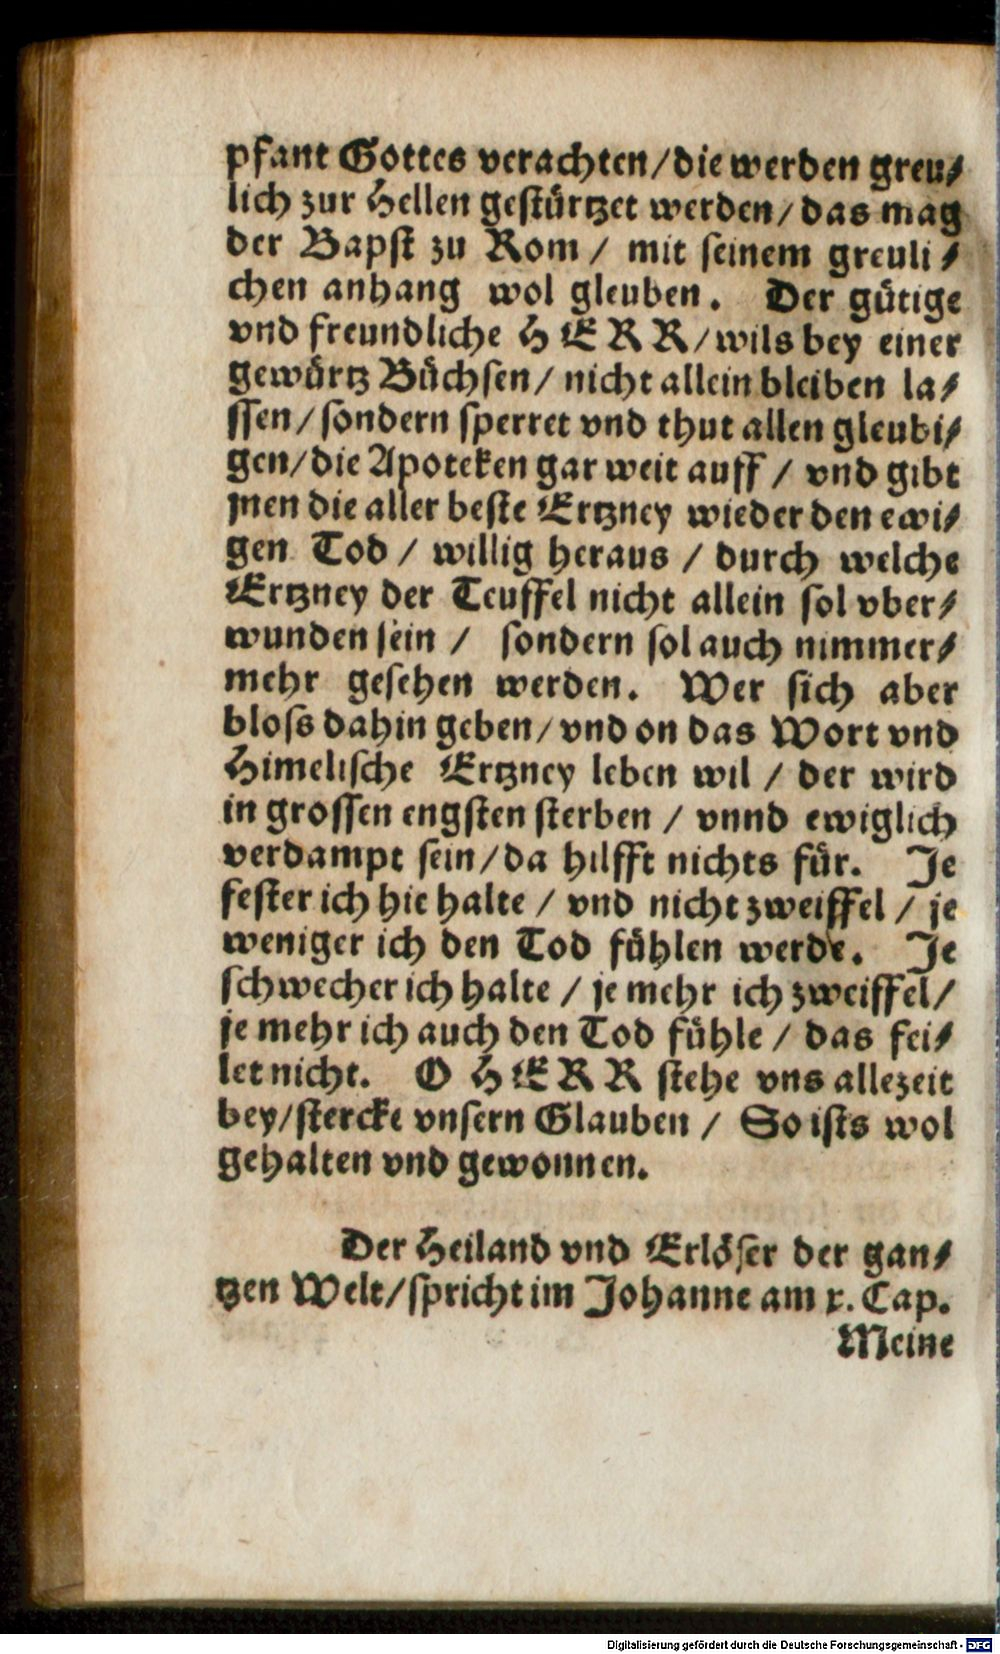 pfant Gottes verachten/die werden greu⸗
lich zur Hellen gestürtzet werden/das mag
der Bapst zu Rom / mit seinem greuli⸗
chen anhang wol gleuben. Der gütige
vnd freundliche HERR/wils bey einer
gewürtz Büchsen/ nicht allein bleiben la⸗
ssen/sondern sperret vnd thut allen gleubi⸗
gen/die Apoteken gar weit auff / vnd gibt
jnen die aller beste Ertzney wieder den ewi⸗
gen Tod / willig heraus / durch welche
Ertzney der Teuffel nicht allein sol vber⸗
wunden sein / sondern sol auch nimmer⸗
mehr gesehen werden. Wer sich aber
bloss dahin geben/vnd on das Wort vnd
Himelische Ertzney leben wil / der wird
in grossen engsten sterben / vnnd ewiglich
verdampt sein/da hilfft nichts für. Je
fester ich hie halte / vnd nicht zweiffel / je
weniger ich den Tod fühlen werde. Je
schwecher ich halte / je mehr ich zweiffel/
je mehr ich auch den Tod fühle / das fei⸗
let nicht. O HERR stehe vns allezeit
bey/stercke vnsern Glauben / So ists wol
gehalten vnd gewonnen.
Der Heiland vnd Erlöser der gan⸗
tzen Welt/spricht im Johanne am x. Cap.
Meine
Digitalisierung gefördert durch die Deutsche Forschungsgemeinschaft - DFG